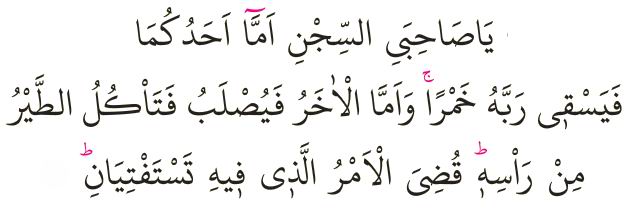 يَاصَاحِبَيِ السِّجْنِ اَمَّٓا اَحَدُكُمَا
فَيَسْقٖى رَبَّهُ خَمْرًاۚ وَاَمَّا الْاٰخَرُ فَيُصْلَبُ فَتَاْكُلُ الطَّيْرُ
مِنْ رَاْسِهٖؕ قُضِىَ الْاَمْرُ الَّذٖى فٖيهِ تَسْتَفْتِيَانِؕ